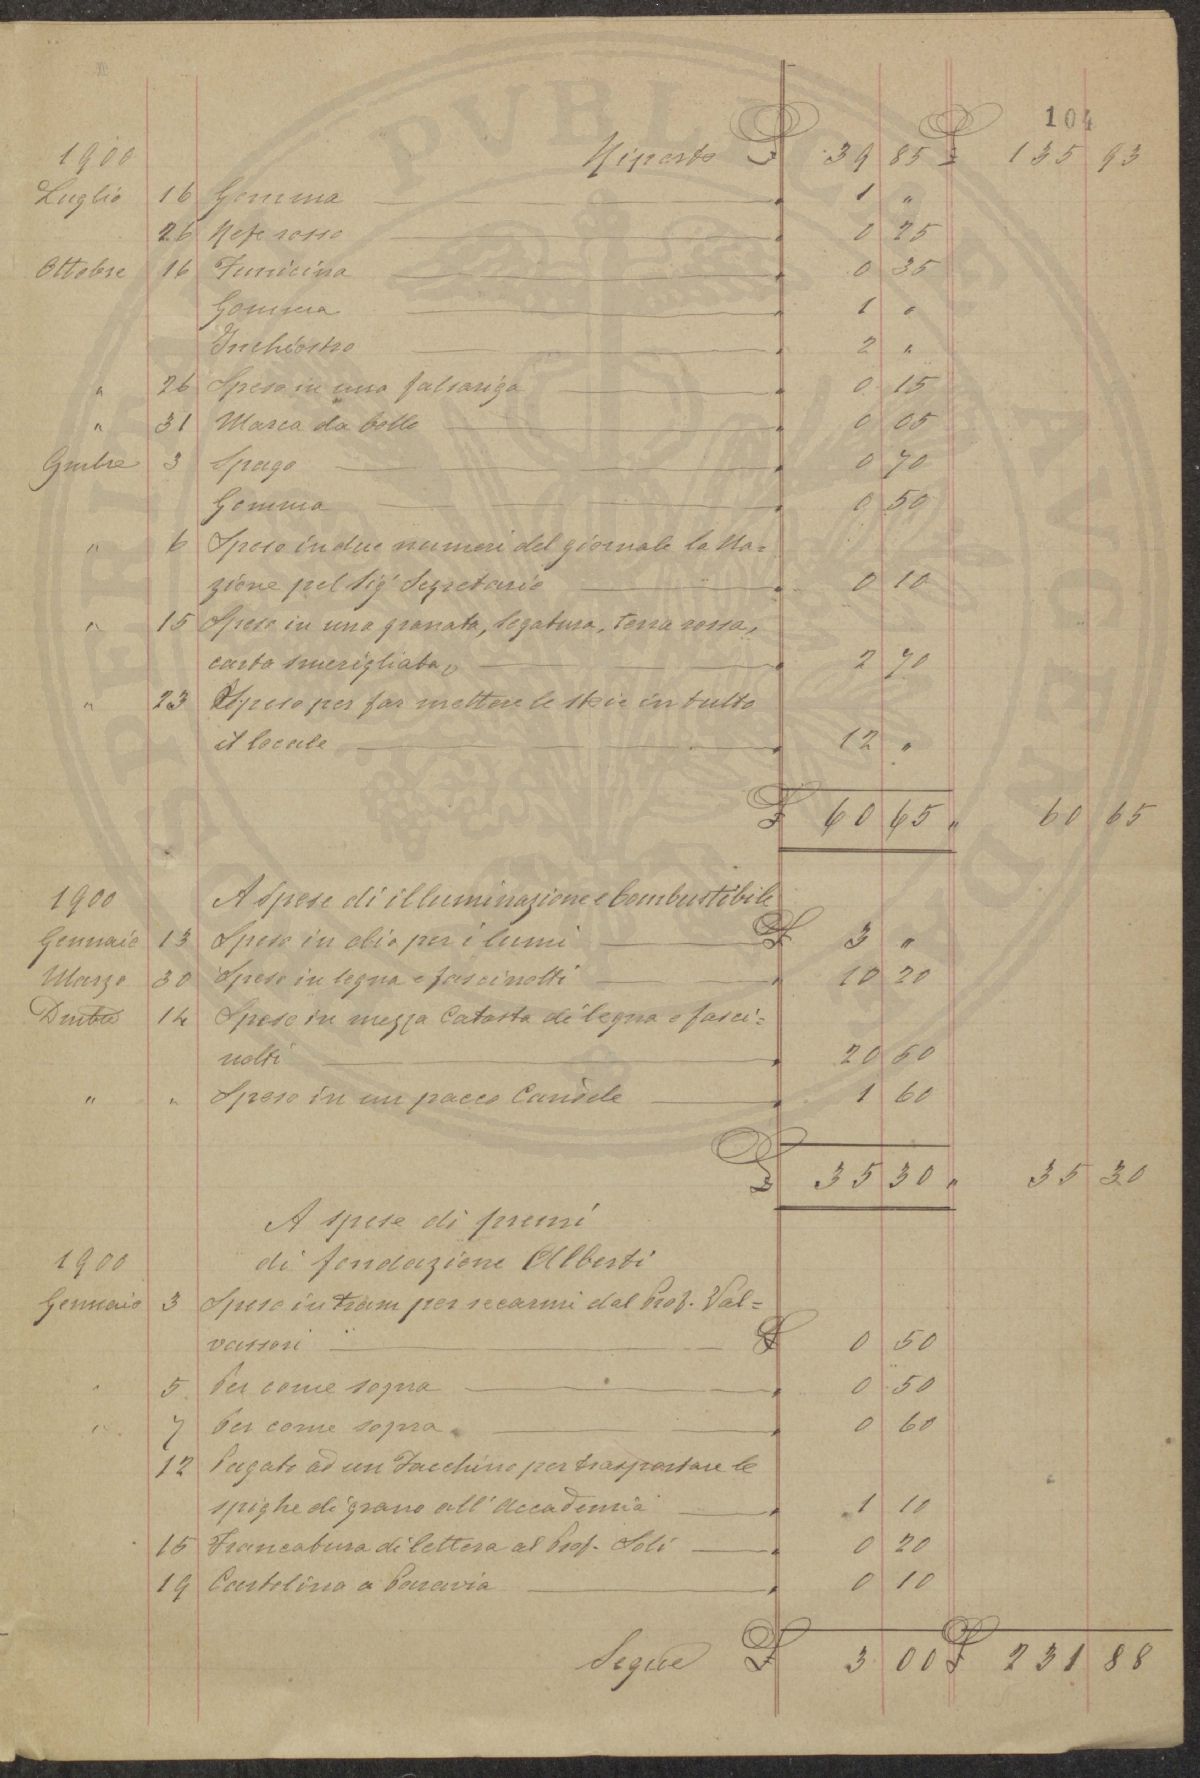 104
1900 Riporto £ 39 85 £ 135 93
Luglio 16 Gomma " 1 "
26 Refe rosso " 0 25
Ottobre 16 Funicina " 0 35
Gomma " 1 "
Inchiostro " 2 "
" 26 Spese in una falsariga " 0 15
" 31 Marca da bollo " 0 05
9mbre 3 Spago " 0 70
Gomma " 0 50
" 6 Spese in due numeri del giornale la Na=
zione pel Sig. Segretario " 0 10
" 15 Spese in una granata, legatura, terra rossa,
carta smerigliata, " 2 70
" 23 Spese per far mettere le stoie in tutto
il locale " 12 "
£ 60 65 " 60 65
1900 A Spese di illuminazione e Combustibile
Gennaio 13 Spese in olio per i lumi £ 3 "
Marzo 30 Spese in legna e fascinotti " 10 20
Dmbre 14 Spese in mezza Catasta di legna e fasci=
notti " 20 50
" " Spese in un pacco Candele " 1 60
£ 35 30 " 35 30
A spese di premi
1900 di fondazione Alberti
Gennaio 3 Spese in tram per recarmi dal Prof. Val=
vassori £ 0 50
" 5 Per come sopra " 0 50
" 7 Per come sopra " 0 60
12 Pagato ad un Facchino per trasportare le
spighe di grano all'Accademia " 1 10
15 Francatura di lettera al Prof. Soli " 0 20
19 Cartolina a Paravia " 0 10
Segue £ 3 00 £ 231 88